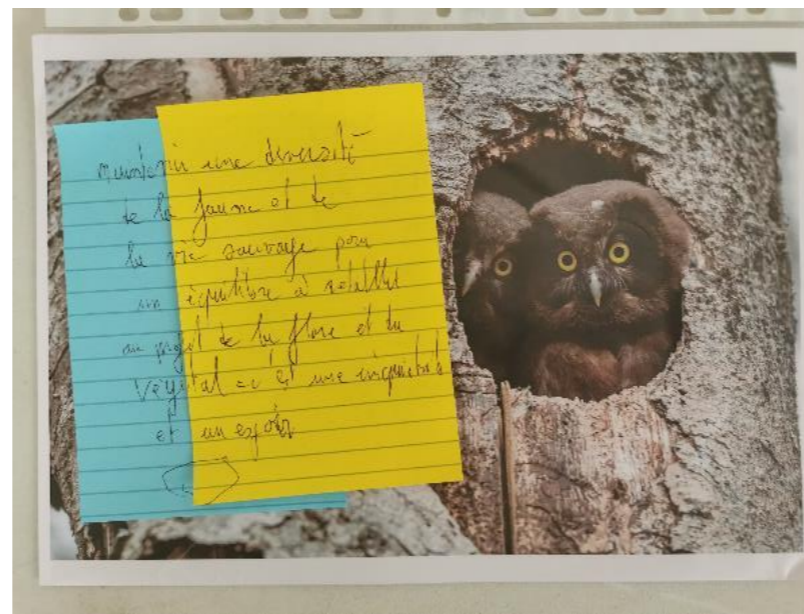 maintenir une diversité
de la faune et de
la vie sauvage pour
un équilibre à rétablir
au profit de la flore et du
végétal = c'est une inquiétude
et un espoir